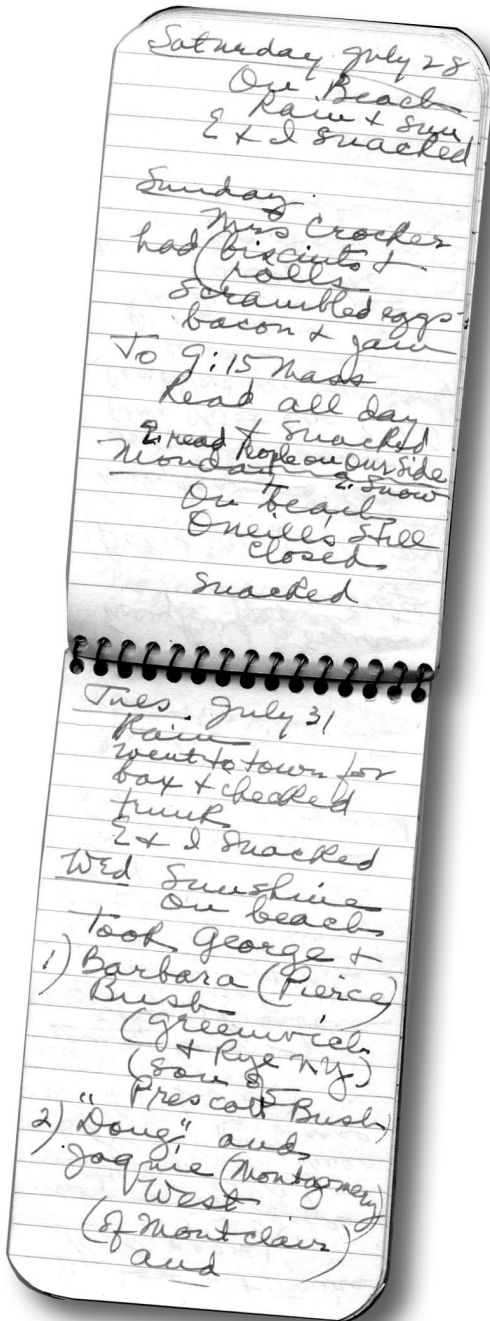 Saturday July 28
On Beach
Rain + Sun
E + I snacked
Sunday.
Mrs Crocker
had (biscuits +
(rolls
scrambled eggs
bacon + jam
To 9:15 Mass
Read all day
+ snacked
E. read People on Our Side
Monday E. Snow
On beach
Oneill's still
closed
snacked
Tues. July 31
Rain
went to town for
box + checked
trunk
E + I snacked
Wed Sunshine
on beach
Took George +
1) Barbara (Pierce)
Bush
(Greenwich
+ Rye NY)
(son of
Prescott Bush)
2) "Doug" and
Jaqnie (Montgomery)
West
(of Montclair)
and